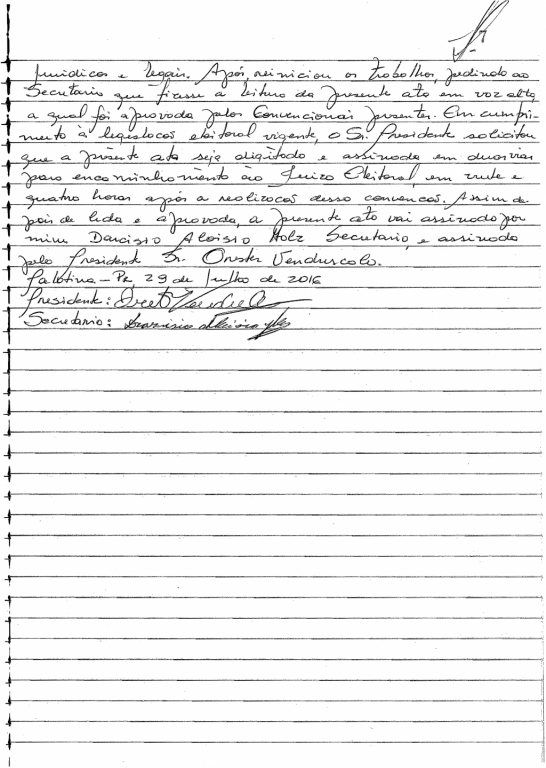 Jurídicos e legais. Após, reiniciou os trabalhos, pedindo ao
Secretario que fizesse a leitura da presente ata em voz alta,
a qual foi aprovada pelos Convencionais presentes. Em cumpri-
mento à legislação eleitoral vigente, o Sr. Presidente solicitou
que a presente ata seja digitada e assinada em duas vias
para encaminhamento ao Juizo Eleitoral, em vinte e
quatro horas após a realização dessa convenção. Assim de
pois de lida e aprovada, a presente ata vai assinada por
mim Darcisio Aloisio Holz Secretario, e assinada
pelo Presidente Sr. Orestes Venduscolo.
Palotina - Pr, 29 de Julho de 2016
Presidente:
Secretario: